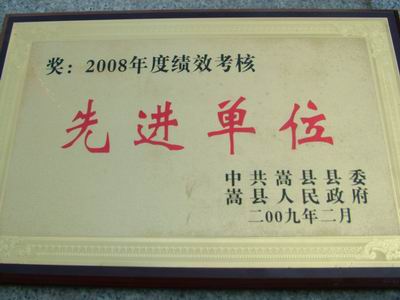 奖：2008年度绩效考核
先进单位
中共嵩县县委
嵩县人民政府
二00九年二月